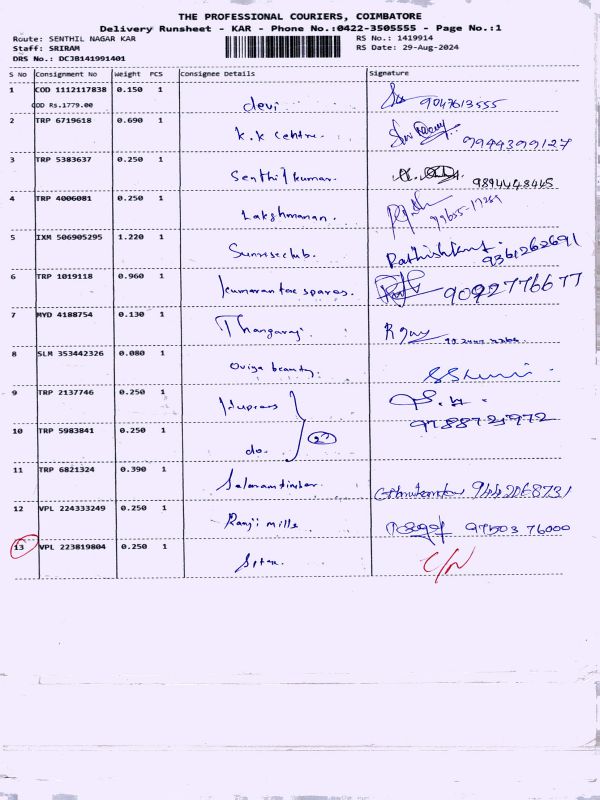 THE PROFESSIONAL COURIERS, COIMBATORE
Delivery Runsheet - KAR - Phone No.:0422-3505555 - - Page No.:1
Route: SENTHIL NAGAR KAR RS No.: 1419914
Staff: SRIRAM RS Date: 29-Aug-2024
DRS No.: DCJB141991401
S No Consignment No Weight PCS Consignee Details Signature
1 COD 1112117838 0.150 1
COD Rs.1779.00 devi 9047613555
2 TRP 6719618 0.690 1
K.K Centre. 9944399127
3 TRP 5383637 0.250 1
Senthilkumar. 9894448445
4 TRP 4006081 0.250 1
Lakshmanan. 99655-17289
5 IXM 506905295 1.220 1
Sunrise club. Rathishkumar. 9361262691
6 TRP 1019118 0.960 1
Kumaran tex spares. 9092776677
7 MYD 4188754 0.130 1
Thangaraj.
8 SLM 353442326 0.080 1
Oviya beauty.
9 TRP 2137746 0.250 1
10 TRP 5983841 0.250 1
do.
11 TRP 6821324 0.390 1
12 VPL 224333249 0.250 1
Ranji mills 97503 76000
13 VPL 223819804 0.250 1
C/N